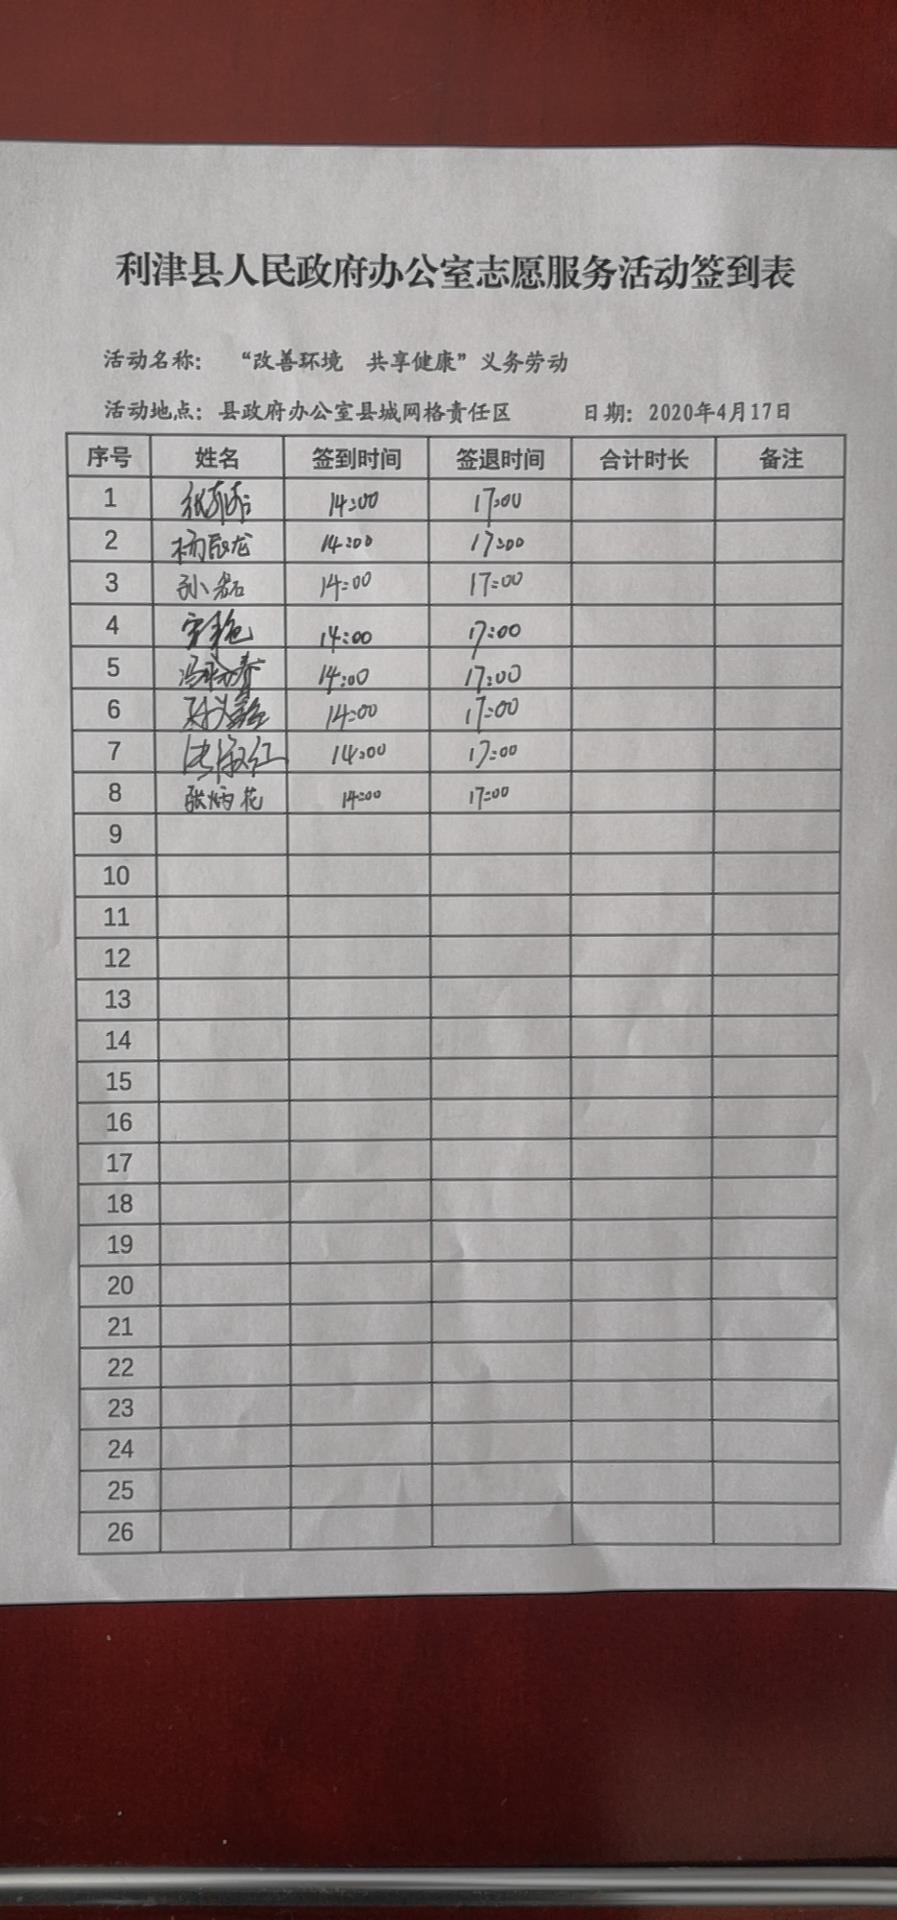 利津县人民政府办公室志愿服务活动签到表
活动名称： “改善环境 共享健康”义务劳动
活动地点：县政府办公室县城网格责任区 日期：2020年4月17日
序号 姓名 签到时间 签退时间 合计时长 备注
1 14:00 17:00
2 14:00 17:00
3 孙磊 14:00 17:00
4 14:00 17:00
5 14:00 17:00
6 14:00 17:00
7 14:00 17:00
8 张炳花 14:00 17:00
9
10
11
12
13
14
15
16
17
18
19
20
21
22
23
24
25
26